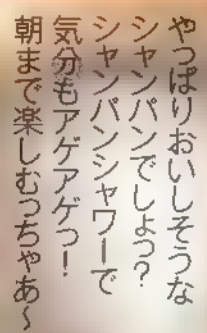 やっぱりおいしそうな
シャンパンでしょっ？
シャンパンシャワーで
気分もアゲアゲっ！
朝まで楽しむっちゃあ～